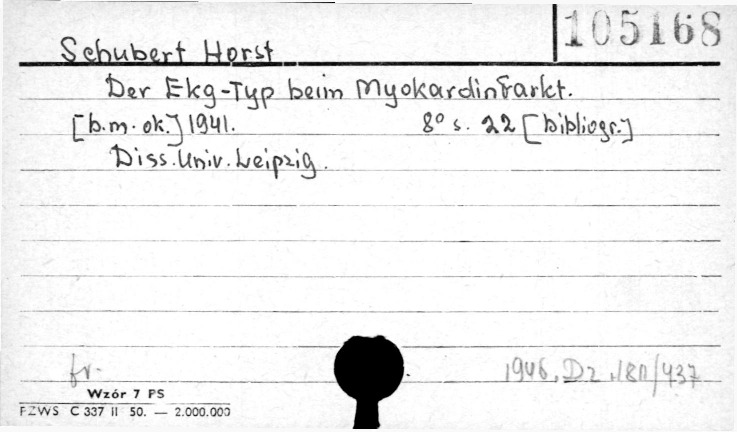 105168
Schubert Horst
Der Ekg-Typ beim Myokardinfarkt.
[b.m. ok.] 1941. 8° s. 22 [bibliogr.]
Diss. Univ. Leipzig.
fr.
1946, Dz. /437
Wzór 7 PS
PZWS C 337 II 50. — 2.000.000